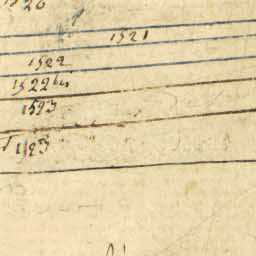 1520
1521
1522
1522 bis
1523
1523